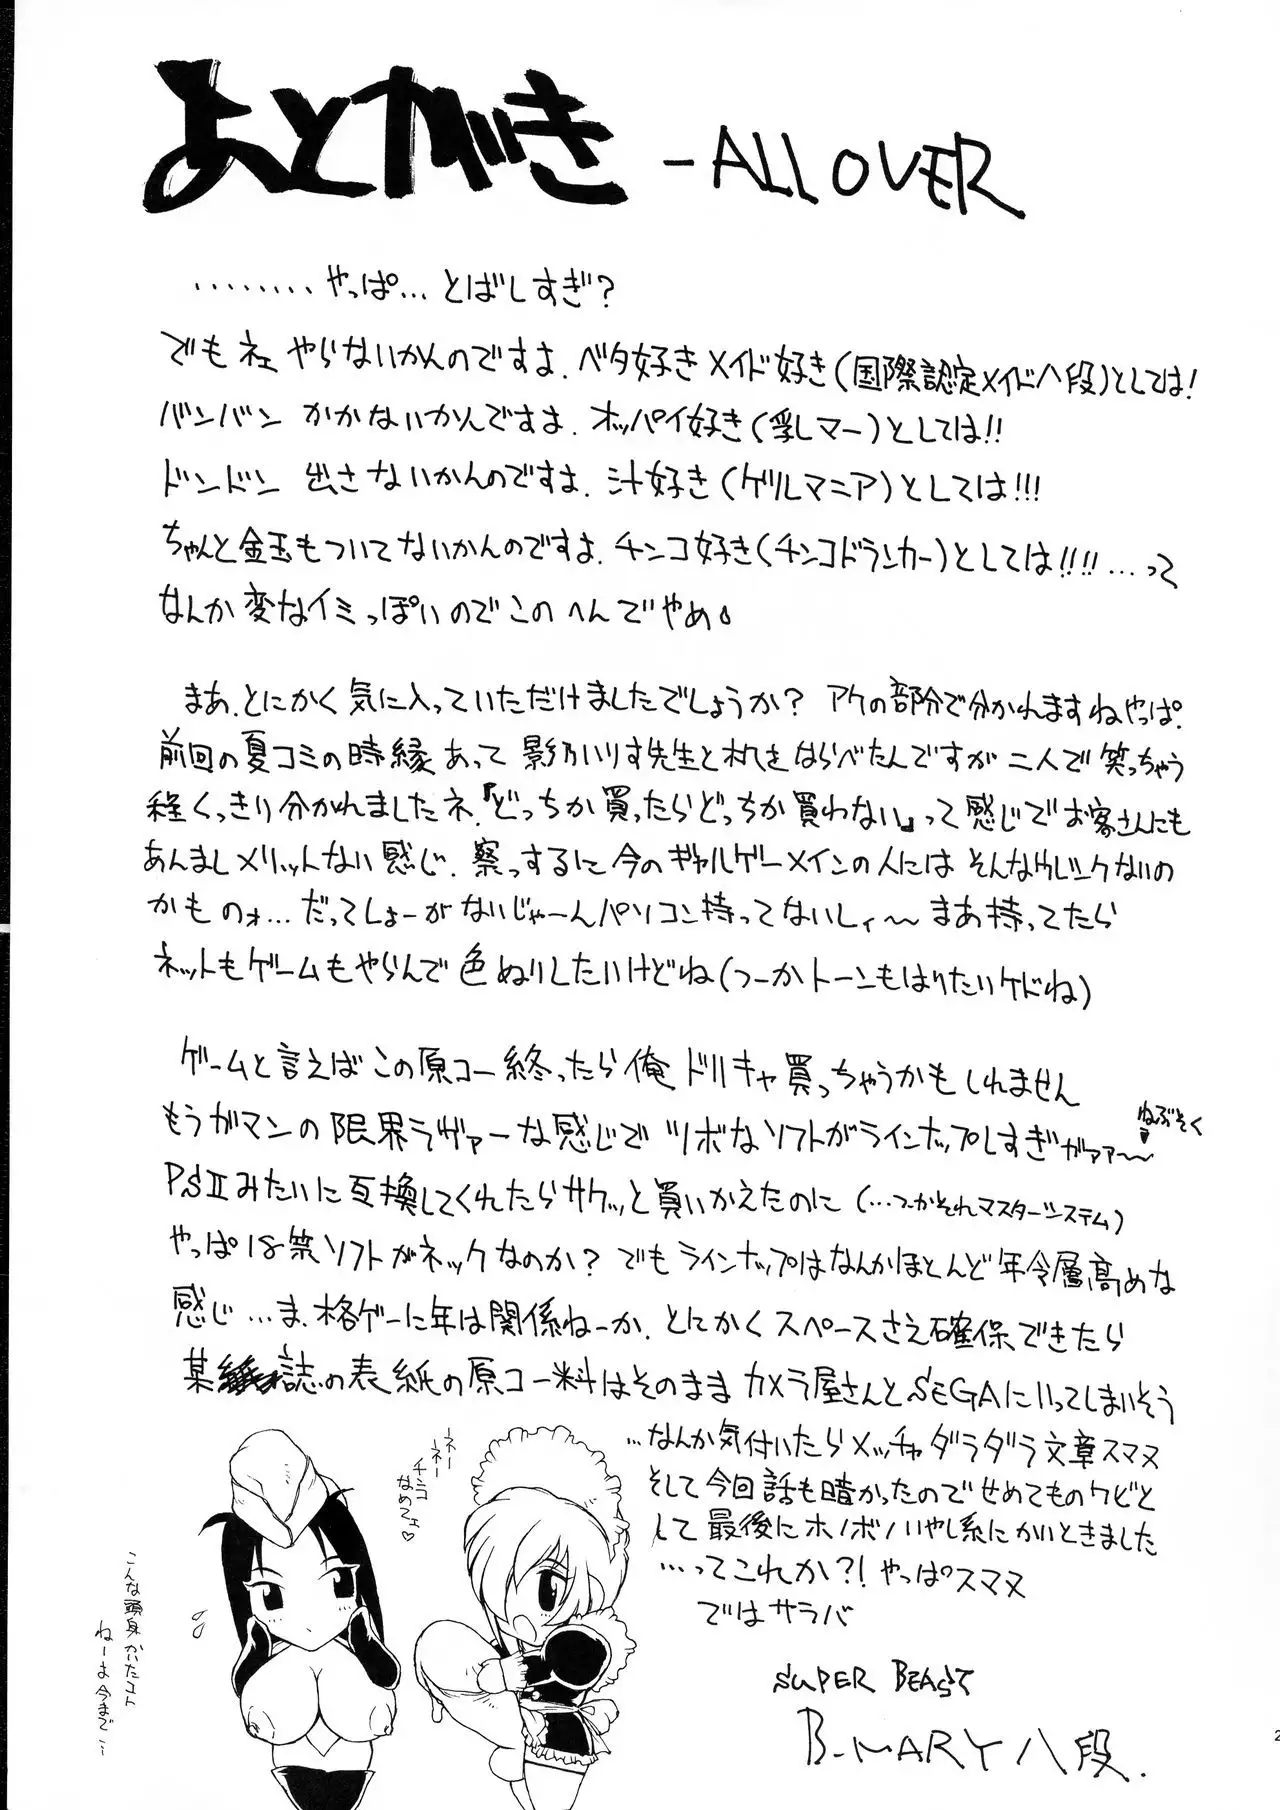 あとがき -ALL OVER
........やっぱ…とばしすぎ？
でもネェ やらないかんのですよ.ベタ好きメイド好き(国際認定メイド八段)としては!
バンバン かかないかんですよ.オッパイ好き(乳しマー)としては!!
ドンドン 出さないかんのですよ.汁好き(ゲルマニア)としては!!!
ちゃんと金玉もついてないかんのですよ.チンコ好き(チンコドランカー)としては!!!!…って
なんか変なイミっぽいのでこのへんでやめ。
まあ、とにかく気に入っていただけましたでしょうか? アケの部分で分かれますねやっぱ.
前回の夏コミの時縁あって 影乃いりす先生と机をならべたんですが二人で笑っちゃう
程くっきり分かれましたネ.『どっちか買ったらどっちか買わない』って感じでお客さんにも
あんましメリットない感じ.察っするに今のギャルゲーメインの人にはそんなウレシクないの
かものォ…だってしょーがないじゃーんパソコン持ってないしィ〜まあ持ってたら
ネットもゲームもやらんで色ぬりしたいけどね(つーかトーンもはりたいケドね)
ゲームと言えばこの原コー終ったら俺ドリキャ買っちゃうかもしれません
もうガマンの限界ラヴァーな感じでツボなソフトがラインナップしすぎがァァ〜〜
ねぶそく
PSⅡみたいに互換してくれたらサクッと買いかえたのに(…つーかそれマスターシステム)
やっぱ18禁ソフトがネックなのか？でもラインナップはなんかほとんど年令層高めな
感じ…ま、格ゲーに年は関係ねーか.とにかくスペースさえ確保できたら
某誌の表紙の原コー料はそのままカメラ屋さんとSEGAにいってしまいそう
…なんか気付いたらメッチャダラダラ文章スマヌ
そして今回話も暗かったのでせめてものクビと
して最後にホノボノいやし系にかいときました
…ってこれか?!やっぱスマヌ
ではサラバ
SUPER BEAST
B-MARY 八段.
ネー
ネー
チンコ
なめてェ♡
こんな頭身かいたコト
ねーよ今まで…
2